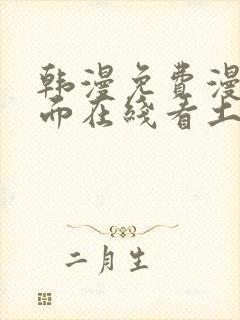 韩漫免费漫
而在线看土
二月生